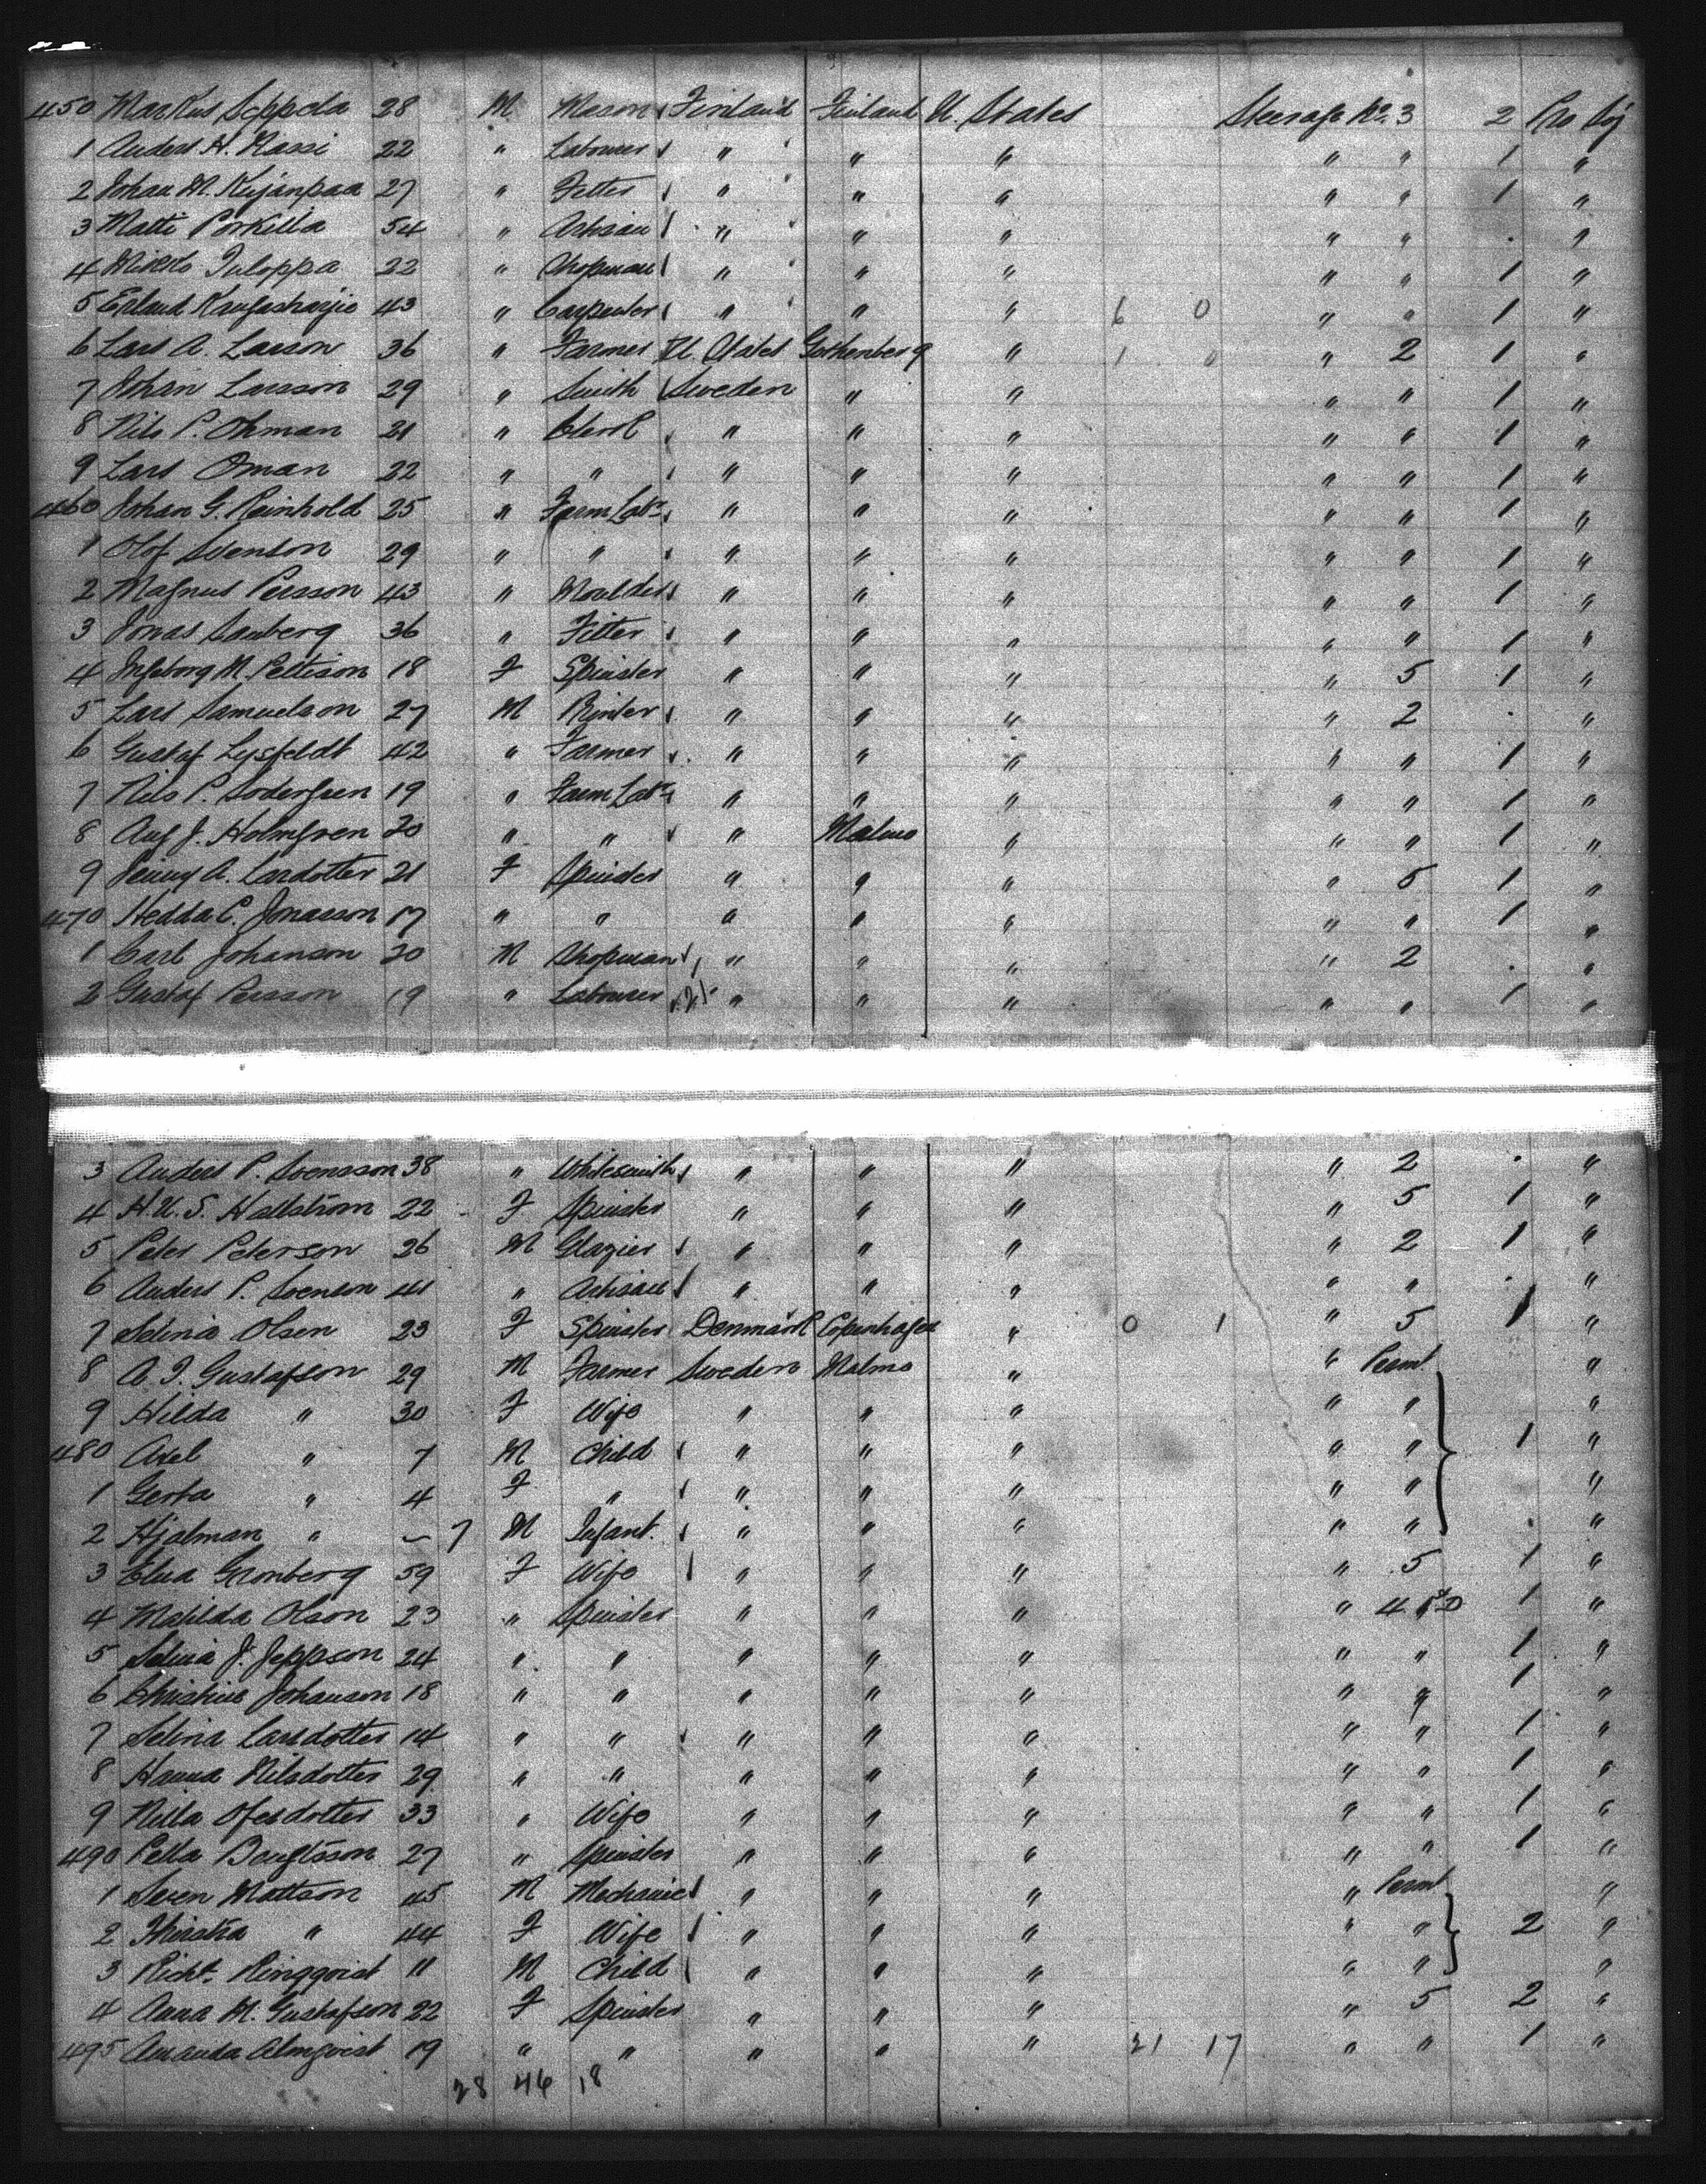 450 Markus Seppela 28 M Mason Finland Finland U. States Steerage No. 3 2 Pro Soj
1 Anders H. Kassi 22 " Labourer " " " " " 1 "
2 Johan M. Kujanpaa 27 " Fitter " " " " " 1 "
3 Matti Porkilla 54 " Artisan " " " " " . "
4 22 " Shopman " " " " " 1 "
5 Erland 43 " Carpenter " " " 6 0 " " 1 "
6 Lars A. Larson 36 " Farmer U States Gothenberg " 1 0 " 2 1 "
7 Johan Larsson 29 " Smith Sweden " " " " 1 "
8 Nils P. Ohman 21 " Clerk " " " " " 1 "
9 Lars Oman 22 " " " " " " " 1 "
460 Johan G. Reinhold 25 " Farm Labr " " " " " 1 "
1 Olof Svenson 29 " " " " " " " 1 "
2 Magnus Persson 43 " Moulder " " " " " 1 "
3 Jonas Sanberg 36 " Fitter " " " " " 1 "
4 Ingeborg M. Pettison 18 F Spinster " " " " 5 1 "
5 Lars Samuelson 27 M Printer " " " " 2 . "
6 Gustaf Lysfeldt 42 " Farmer " " " " " 1 "
7 Nils P. Sodergren 19 " Farm Labr " " " " " 1 "
8 Aug J. Holmgren 20 " " " Malmo " " " 1 "
9 Jenny A. Lardotter 21 F Spinster " " " " 5 1 "
470 Hedda C. Jonasson 17 " " " " " " " 1 "
1 Carl Johanson 20 M Shopman " " " " 2 . "
2 Gustaf Persson 19 " Labourer 21 " " " " " 1 "
3 Anders P. Svensson 38 " Whitesmith " " " " 2 . "
4 H.U.S. Hallström 22 F Spinster " " " " 5 1 "
5 Peter Peterson 26 M Glazier " " " " 2 1 "
6 Anders P. Svenson 41 " Artisan " " " " " . "
7 Selinia Olsen 23 F Spinster Denmark Copenhagen " 0 1 " 5 1 "
8 A. J. Gustafson 29 M Farmer Sweden Malmo " " Permt "
9 Hilda " 30 F Wife " " " " " "
480 Axel " 7 M Child " " " " " 1 "
1 Gerta " 4 F " " " " " " "
2 Hjalman " - 7 M Infant. " " " " " . "
3 Elna Gronberg 59 F Wife " " " " 5 1 "
4 Matilda Olson 23 " Spinster " " " " 4 1 "
5 Selina J. Jeppson 24 " " " " " " " 1 "
6 Christine Johanson 18 " " " " " " " 1 "
7 Selina Larsdotter 14 " " " " " " " 1 "
8 Hanna Nilsdotter 29 " " " " " " " 1 "
9 Nilla Ofesdotter 33 " Wife " " " " " 1 "
490 Pella Bengtsson 27 " Spinster " " " " " 1 "
1 Seven Mattson 45 M Mechanic " " " " Permt "
2 " 44 F Wife " " " " " 2 "
3 Richt. Ringqvist 11 M Child " " " " " "
4 Anna M. Gustafson 22 F Spinster " " " " 5 2 "
495 Amanda Almqvist 19 " " " " " 21 17 " " 1 "
28 46 18